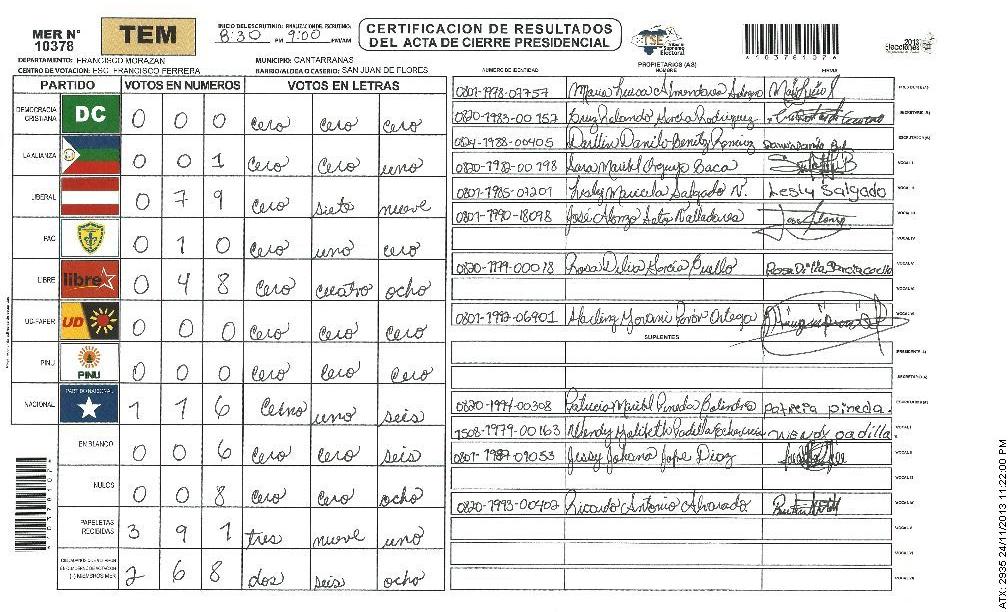 MER N° 10378
TEM
INICIO DE ESCRUTINIO: FINALIZACION DE ESCRUTINIO:
8:30 PM 9:00 PM/AM
CERTIFICACION DE RESULTADOS
DEL ACTA DE CIERRE PRESIDENCIAL
TSE Tribunal Supremo Electoral
A10378107A
2013 Elecciones
DEPARTAMENTO: FRANCISCO MORAZAN MUNICIPIO: CANTARRANAS
CENTRO DE VOTACION: ESC. FRANCISCO FERRERA BARRIO/ALDEA O CASERIO: SAN JUAN DE FLORES
PARTIDO VOTOS EN NUMEROS VOTOS EN LETRAS
DEMOCRACIA CRISTIANA DC 0 0 0 cero cero cero
LA ALIANZA 0 0 1 cero cero uno
LIBERAL 0 7 9 cero siete nueve
PAC 0 1 0 cero uno cero
LIBRE libre 0 4 8 cero cuatro ocho
UD-FAPER UD 0 0 0 cero cero cero
PINU PINU 0 0 0 cero cero cero
NACIONAL PARTIDO NACIONAL 1 1 6 uno seis
EN BLANCO 0 0 6 cero cero seis
NULOS 0 0 8 cero cero ocho
PAPELETAS RECIBIDAS 3 9 1 tres nueve uno
2 6 8 dos seis ocho
NUMERO DE IDENTIDAD PROPIETARIOS (AS) NOMBRE FIRMA
0801-1998-07757 Maria Luisa Almendares PRESIDENTE(A)
0820-1983-00157 Rolando Garcia Rodriguez SECRETARIO(A)
0824-1988-00405 Darllin Danilo Benitz ESCRUTADOR(A)
0820-1982-00198 Sara Maribel Baca VOCAL I
0801-1985-07201 Lesly Maricela Salgado N. Lesly Salgado VOCAL II
0801-1990-18098 José Alonzo Valladares VOCAL III
VOCAL IV
0820-1979-00078 Rosa Delia Garcia VOCAL V
VOCAL VI
0801-1992-06901 Pavon Ortega VOCAL VII
SUPLENTES
PRESIDENTE(A)
SECRETARIO(A)
0820-1994-00308 Patricia Maribel Pineda patricia pineda. ESCRUTADOR(A)
1508-1979-00163 Wendy Padilla wendy padilla VOCAL I
0801-1987-01053 Jessy Johana Diaz VOCAL II
VOCAL III
0820-1993-00402 Ricardo Antonio Alvarado VOCAL IV
VOCAL V
VOCAL VI
VOCAL VII
ATX-2935 24/11/2013 11:22:00 PM